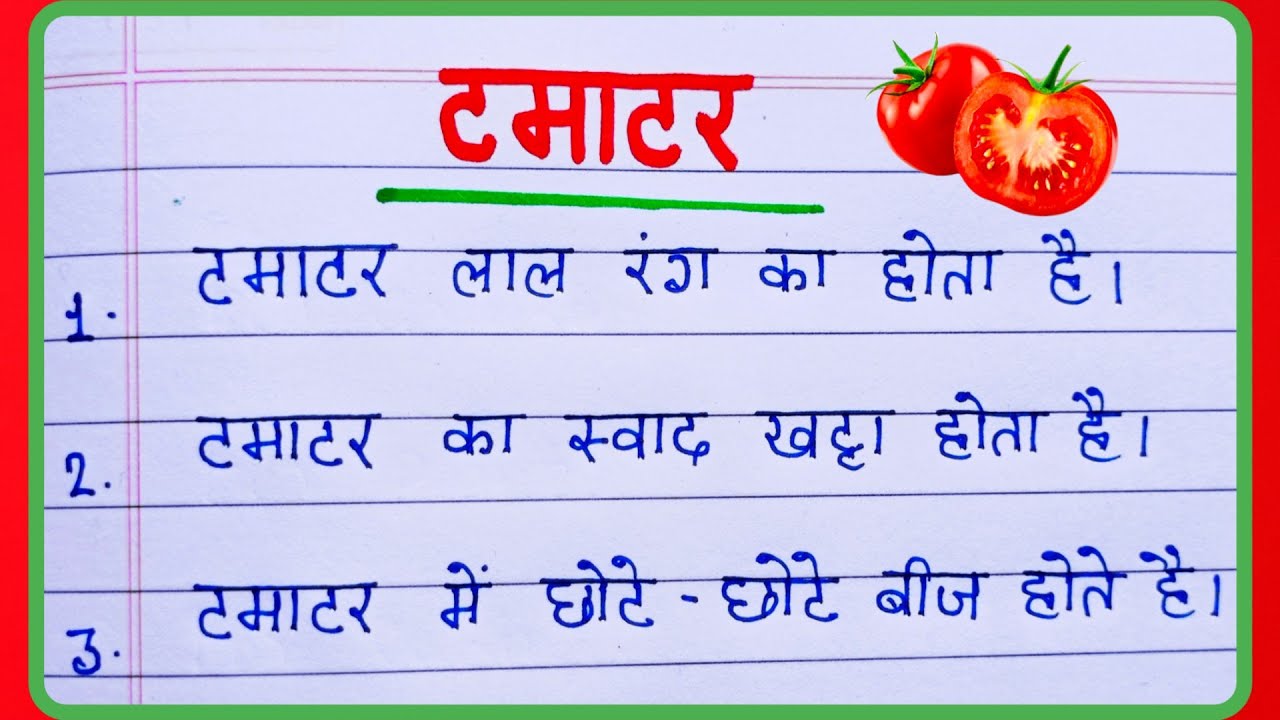 टमाटर
1. टमाटर लाल रंग का होता है।
2. टमाटर का स्वाद खट्टा होता है।
3. टमाटर में छोटे-छोटे बीज होते है।